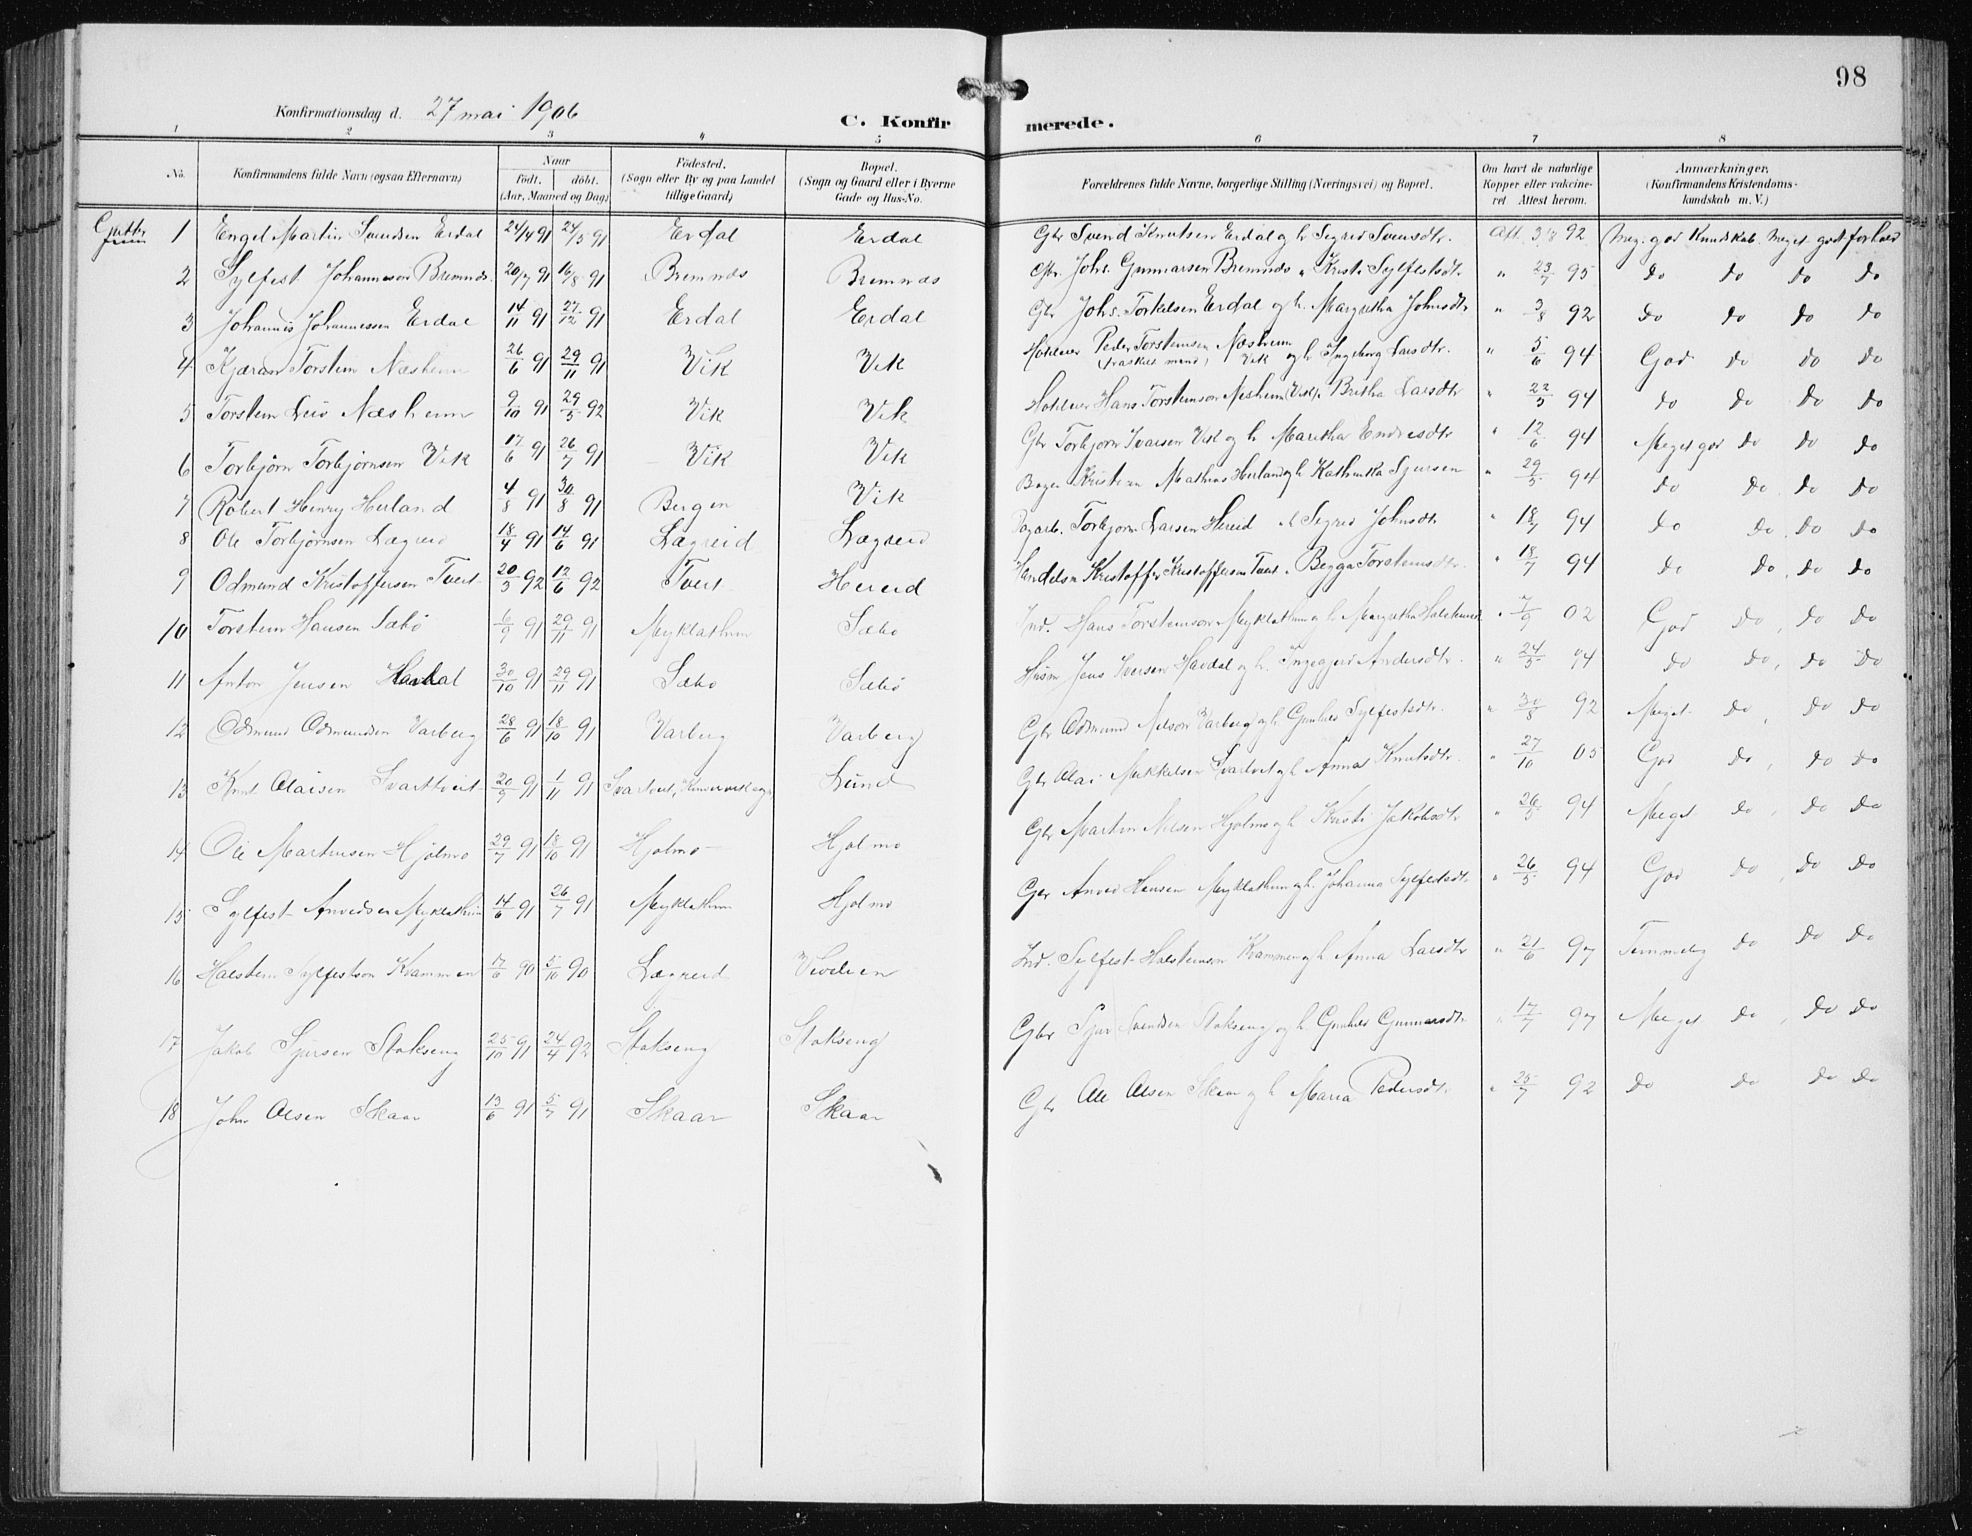 98
Konfirmationsdag d. 27 mai 1906
C. Konfirmerede.
1 2 3 4 5 6 7 8
No. Konfirmandens fulde Navn (ogsaa Efternavn) Naar födt. döbt. (Aar, Maaned og Dag) Födested. (Sogn eller By og paa Landet tillige Gaard) Bopæl. (Sogn og Gaard eller i Byerne Gade og Hus-No. Forældrenes fulde Navne, borgerlige Stilling (Næringsvei) og Bopæl. Om havt de naturlige Kopper eller vakcineret. Attest herom. Anmærkninger, (Konfirmandens Kristendomskundskab m. V.)
1 Engel Martin Svendsen Erdal 24/4 91 24/5 91 Erdal Erdal Gbr Svend Knutsen Erdal og h Sigrid Svensdtr. Att. 3/8 92 Meg. god Kundskab. Meget godt forhold
2 Sylfest Johannesson Bremnes 20/7 91 16/8 91 Bremnes Bremnes Johs. Gunnarsen Bremnes " Kristi Sylfestsdt. " 23/7 95 do do do do
3 Johannis Johannessen Erdal 14/11 91 27/12 91 Erdal Erdal Gbr Johs. Torkelsen Erdal og h. Margretha Johnsdtr " 3/8 92 do do do do
4 Kjæran Torstein Næsheim 26/6 91 29/11 91 Vik Vik Peder Torsteinsen Næsheim Vik og h Ingeborg Larsdtr. " 5/6 94 God do do do
5 Torstein Leis Næsheim 9/10 91 29/5 92 Vik Vik Hans Torsteinson Nesheim (Vik) Britha Larsdtr " 22/5 94 do do do do
6 Torbjörn Torbjörnsen Vik 17/6 91 26/7 91 Vik Vik Gbr Torbjörn Ivarsen Vik og h Maritha Endresdtr " 12/6 94 Meget god do do do
7 Robert Henry Herland 4/8 91 30/8 91 Bergen Vik Bager Kristian Mathias Herland og h Kathinka Sjursen " 29/5 94 do do do do
8 Ole Torbjörnsen Lægreid 18/4 91 14/6 91 Lægreid Lægreid Dagarb. Torbjorn Larsen Hereid h Sigrid Johnsdtr " 18/7 94 do do do do
9 Odmund Kristoffersen Tveit 20/5 92 12/6 92 Tveit Hereid Handelsm Kristoffer Kristoffersen Tveit " Begga Torsteinsdtr " 18/7 94 do do do do
10 Torstein Hansen Sæbö 6/9 91 29/11 91 Myklathun Sæbo Ind. Hans Torsteinson Myklathun og h Margretha Halsteins " 7/9 02 God do do do
11 Anton Jensen Havdal 30/10 91 29/11 91 Sæbo Sæbö Husm Jens Iversen Havdal og h. Ingegjerd Andersdtr. " 24/5 94 do do do do
12 Odmund Odmundsen Varberg 28/6 91 18/10 91 Varberg Varberg Gbr Odmund Nelson Varberg og h Gunhild Sylfestsdtr. " 30/8 92 Meget do do do
13 Knut Olaisen Svarttveit 20/9 91 1/11 91 Svartveit, Lund Gbr Olai Mikkelsen Svartveit og h Anna Knutsdtr. " 27/10 05 God do do do
14 Ole Martinsen Hjölmo 29/7 91 18/10 91 Hjolmo Hjolmo Gbr Martin Nilsen Hjolmo og h Kristi Jakobsdtr " 26/5 94 Meget do do do
15 Sylfest Anvedsen Myklathun 14/6 91 26/7 91 Myklathun Hjolmo Gbr Anved Hansen Myklathun og h. Johanna Sylfestsdt. " 26/5 94 God do do do
16 Halstein Sylfestson Kvammen 17/6 90 5/10 90 Lægreid Vivelien Ind. Sylfest Halsteinson Kvammen og h Anna Larsdtr " 21/6 97 Temmelig do do do
17 Jakob Sjursen Stokseng 25/10 91 24/4 92 Stokseng Stokseng Gbr Sjur Svendsen Stokseng og h Gunhild Gunnarsdtr. " 17/7 97 Meget do do do
18 John Olsen Skaar 13/6 91 5/7 91 Skaar Skaar Gbr Ole Olsen Skaar og h Maria Pedersdt. " 25/7 92 do do do do